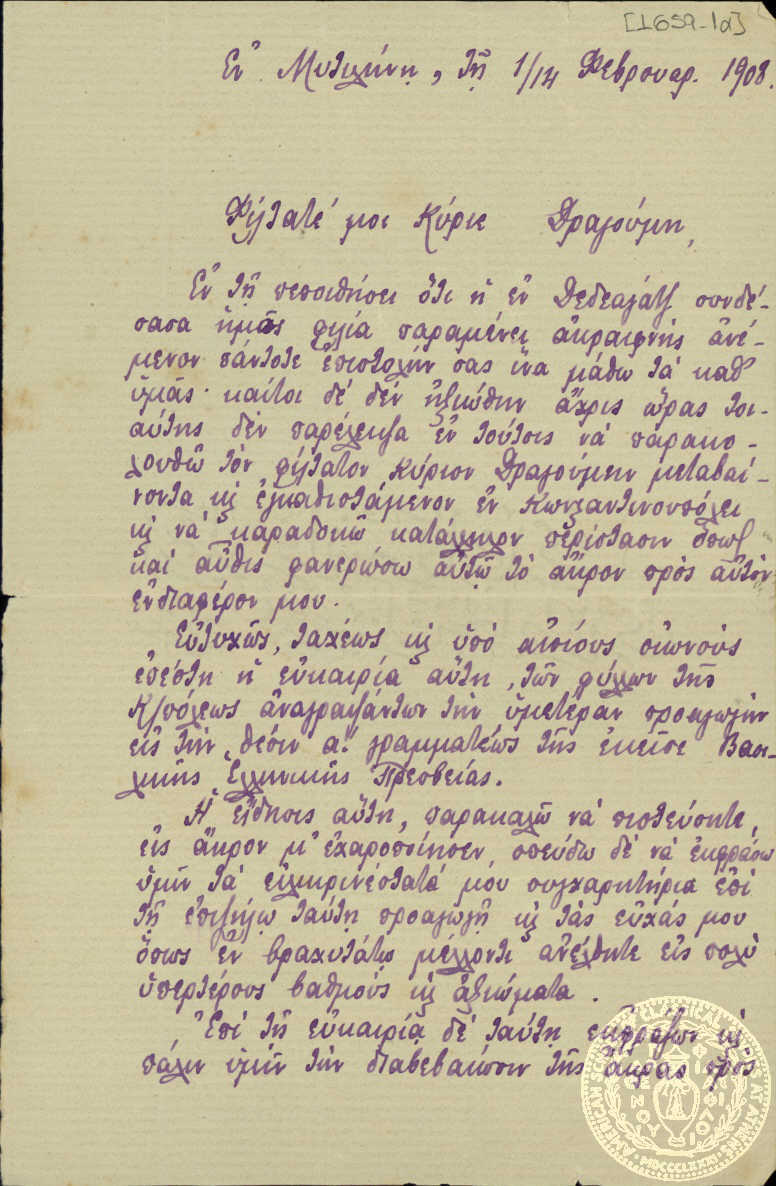 [1659-1α]
Ἐν Μυτιλήνῃ, τῇ 1/14 Φεβρουαρ. 1908.
Φίλτατέ μοι Κύριε Δραγούμη,
Ἐν τῇ πεποιθήσει ὅτι ἡ ἐν Δεδεαγὰτζ συνδέ-
σασα ἡμᾶς φιλία παραμένει ἀκραιφνὴς ἀνέ-
μενον πάντοτε ἐπιστολήν σας ἵνα μάθω τὰ καθ'
ὑμᾶς· καίτοι δὲ δὲν ἠξιώθην ἄχρις ὥρας τοι-
αύτης δὲν παρέλειψα ἐν τούτοις νὰ παρακο-
λουθῶ τὸν φίλτατον Κύριον Δραγούμην μεταβαί-
νοντα κ' ἐγκαθιστάμενον ἐν Κωνσταντινουπόλει
κ' νὰ καραδοκῶ κατάλληλον περίστασιν ὅπως
καὶ αὖθις φανερώσω αὐτῷ τὸ ἄκρον πρὸς αὐτὸν
ἐνδιαφέρον μου.
Εὐτυχῶς, ταχέως κ' ὑπὸ αἰσίους οἰωνοὺς
ἐπέστη ἡ εὐκαιρία αὕτη, τῶν φύλλων τῆς
Κ/πόλεως ἀναγραψάντων τὴν ὑμετέραν προαγωγὴν
εἰς τὴν θέσιν α' γραμματέως τῆς ἐκεῖσε Βασι-
λικῆς Ἑλληνικῆς Πρεσβείας.
Ἡ εἴδησις αὕτη, παρακαλῶ νὰ πιστεύσητε,
εἰς ἄκρον μ' ἐχαροποίησεν, σπεύδω δὲ νὰ ἐκφράσω
ὑμῖν τὰ εἰλικρινέστατά μου συγχαρητήρια ἐπὶ
τῇ ἐπιζήλῳ ταύτῃ προαγωγῇ κ' τὰς εὐχάς μου
ὅπως ἐν βραχυτάτῳ μέλλοντι ἀνέλθητε εἰς πολὺ
ὑπερτέρους βαθμοὺς κ' ἀξιώματα.
Ἐπὶ τῇ εὐκαιρίᾳ δὲ ταύτῃ ἐκφράζων κ'
πάλιν ὑμῖν τὴν διαβεβαίωσιν τῆς ἄκρας πρὸς
AMERICAN SCHOOL OF CLASSICAL STUDIES AT ATHENS
MDCCCLXXXI